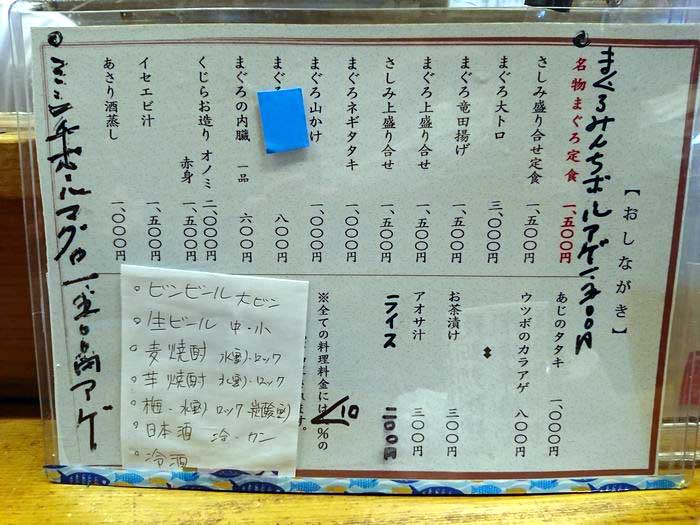 【おしながき】
まぐろみんちボールアゲ 一、五〇〇円
名物まぐろ定食 一、五〇〇円
さしみ盛り合せ定食 一、五〇〇円
まぐろ大トロ 三、〇〇〇円
まぐろ竜田揚げ 一、五〇〇円
まぐろ上盛り合せ 一、五〇〇円
さしみ上盛り合せ 一、五〇〇円
まぐろネギタタキ 一、〇〇〇円
まぐろ山かけ 一、〇〇〇円
まぐろ 八〇〇円
まぐろの内臓 一品 六〇〇円
くじらお造り オノミ 二、〇〇〇円
赤身 一、五〇〇円
イセエビ汁 一、五〇〇円
あさり酒蒸し 一、〇〇〇円
ミンチボールマグロ 一五〇〇円アゲ
あじのタタキ 一、〇〇〇円
ウツボのカラアゲ 八〇〇円
お茶漬け 三〇〇円
アオサ汁 三〇〇円
ライス 二〇〇円
※全ての料理料金には10%の
ます。
○ビンビール 大ビン
○生ビール 中・小
○麦焼酎 水割・ロック
○芋焼酎 水割・ロック
○梅・水割 ロック 炭酸割
○日本酒 冷・カン
○冷酒